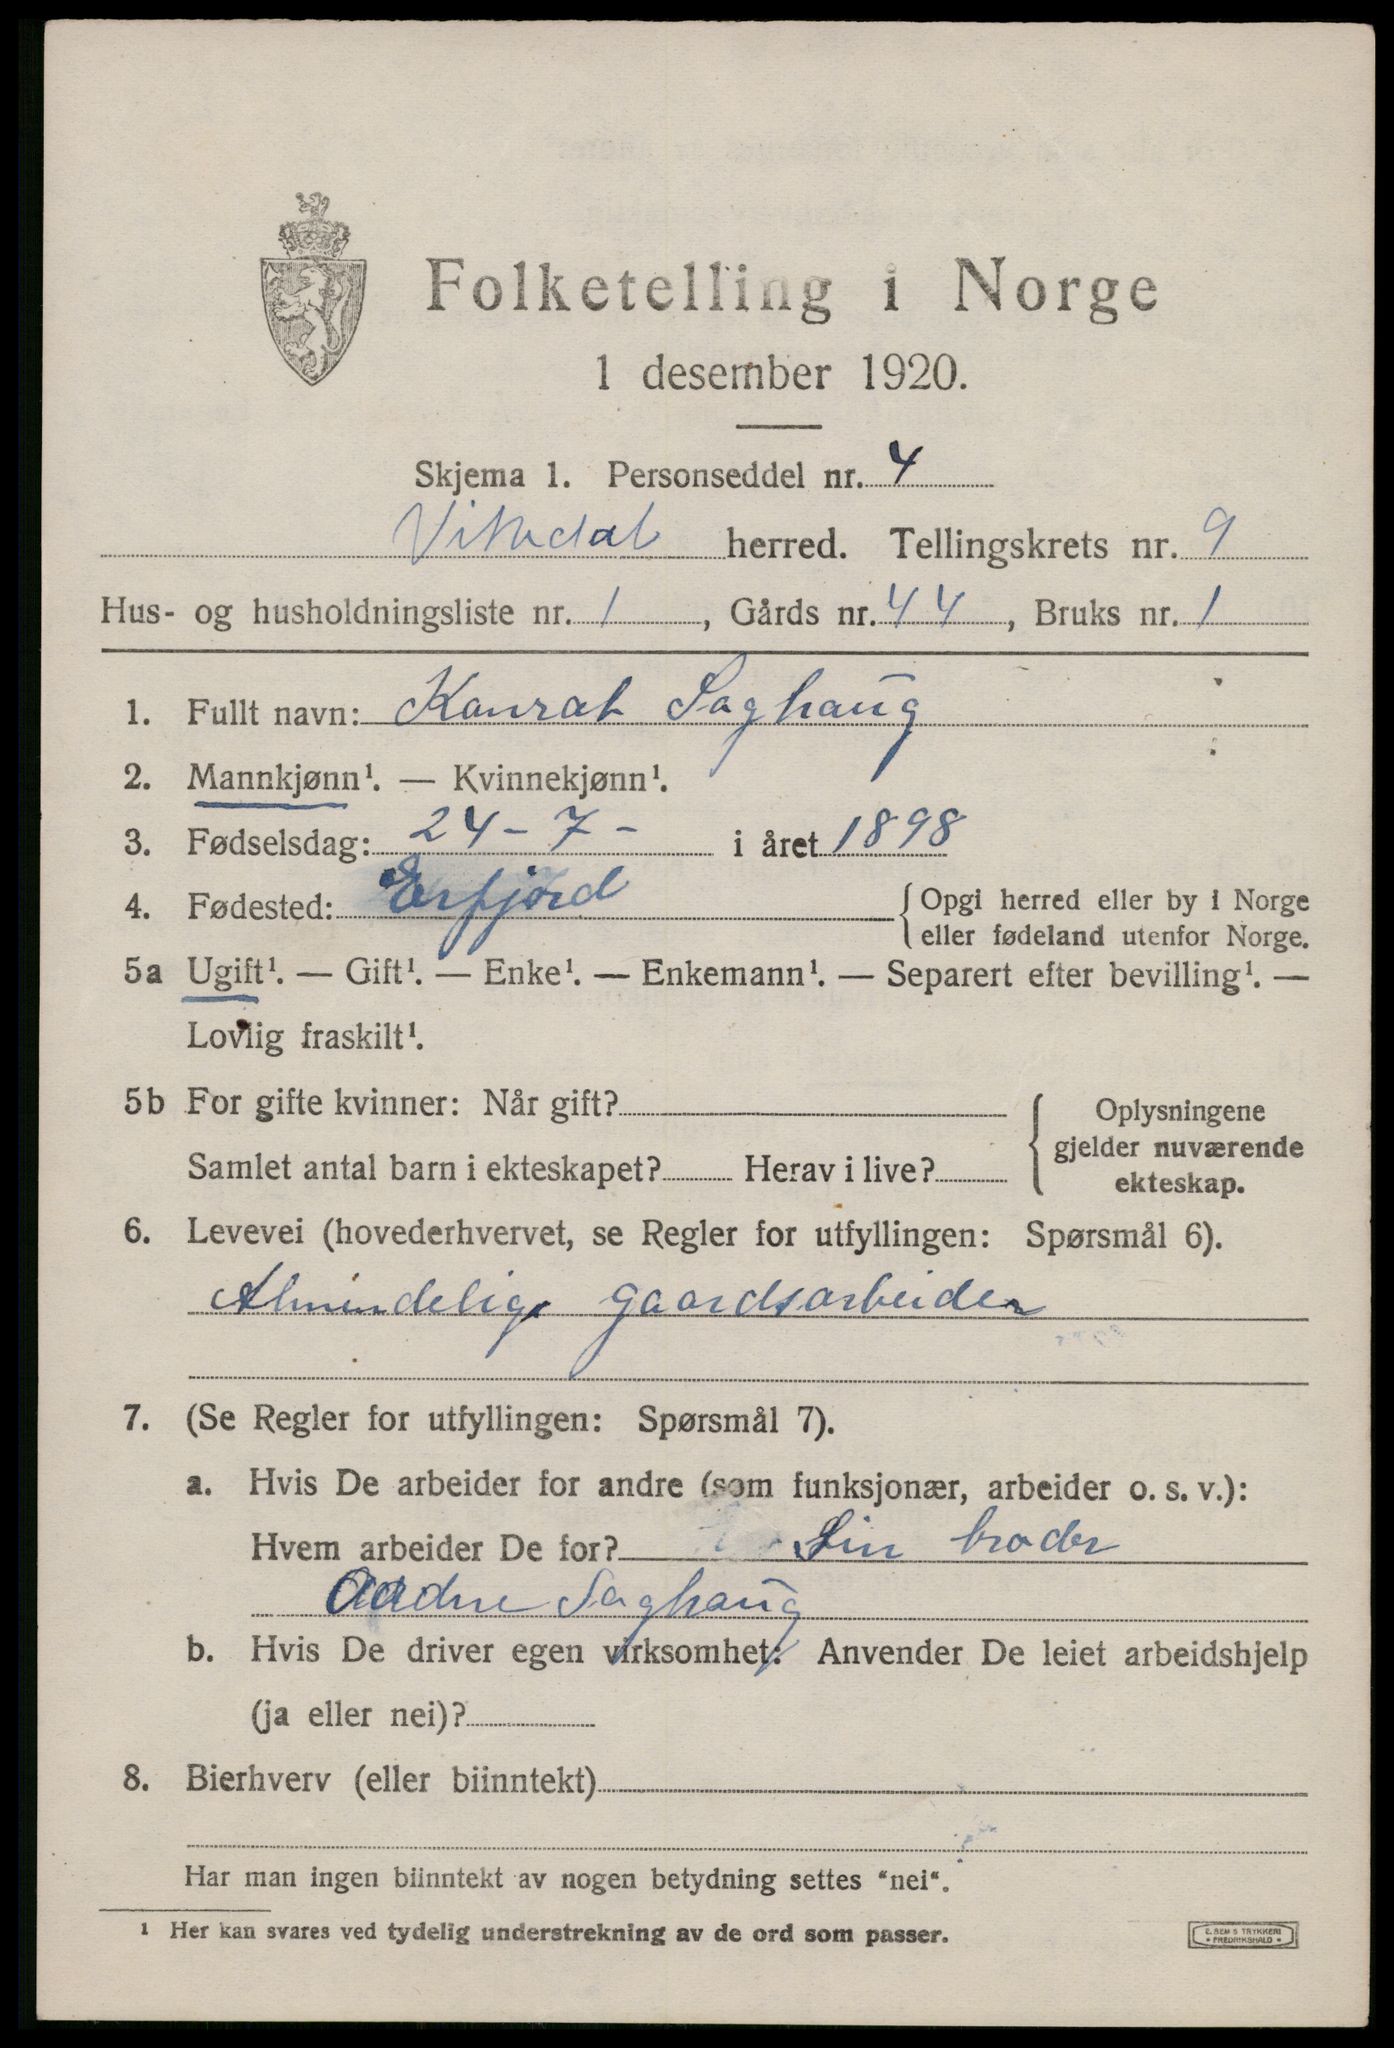 Folketelling i Norge
1 desember 1920.
Skjema 1. Personseddel nr. 4
Vikedal herred. Tellingskrets nr. 9
Hus- og husholdningsliste nr. 1, Gårds nr. 44, Bruks nr. 1
1. Fullt navn: Konrat Saghaug
2. Mannkjønn¹. — Kvinnekjønn¹.
3. Fødselsdag: 24 - 7 - i året 1898
4. Fødested: Erfjord { Opgi herred eller by i Norge
eller fødeland utenfor Norge.
5a Ugift¹. — Gift¹. — Enke¹. — Enkemann¹. — Separert efter bevilling¹. —
Lovlig fraskilt¹.
5b For gifte kvinner: Når gift? { Oplysningene
gjelder nuværende
Samlet antal barn i ekteskapet? Herav i live?
ekteskap.
6. Levevei (hovederhvervet, se Regler for utfyllingen: Spørsmål 6).
Almindelig gaardsarbeider
7. (Se Regler for utfyllingen: Spørsmål 7).
a. Hvis De arbeider for andre (som funksjonær, arbeider o. s. v.):
Hvem arbeider De for? Sin broder
Aadne Saghaug
b. Hvis De driver egen virksomhet: Anvender De leiet arbeidshjelp
(ja eller nei)?
8. Bierhverv (eller biinntekt)
Har man ingen biinntekt av nogen betydning settes "nei".
¹ Her kan svares ved tydelig understrekning av de ord som passer.
E. SEM'S TRYKKERI
• FREDRIKSHALD •